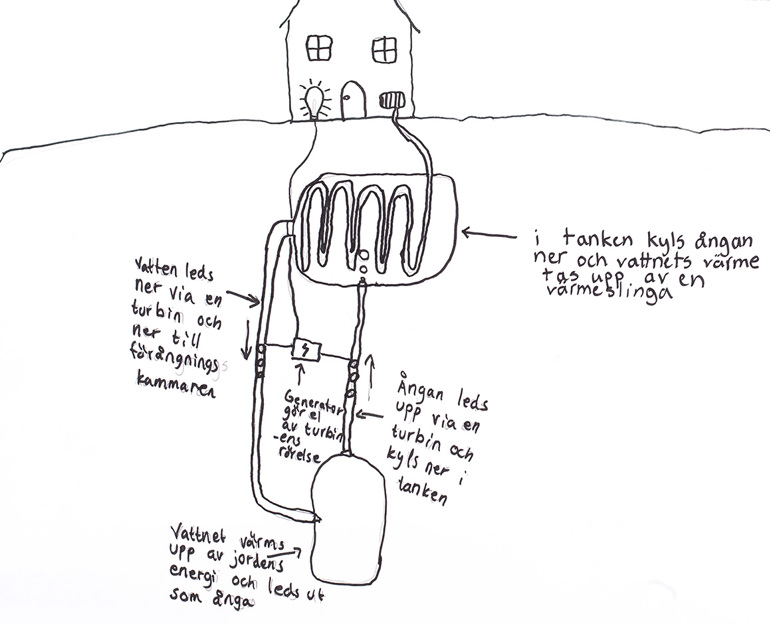 i tanken kyls ångan
ner och vattnets värme
tas upp av en
värmeslinga
Vatten leds
ner via en
turbin och
ner till
förångnings
kammaren
Generator
gör el
av turbin
-ens
rörelse
Ångan leds
upp via en
turbin och
kyls ner i
tanken
Vattnet värms
upp av jordens
energi och leds ut
som ånga